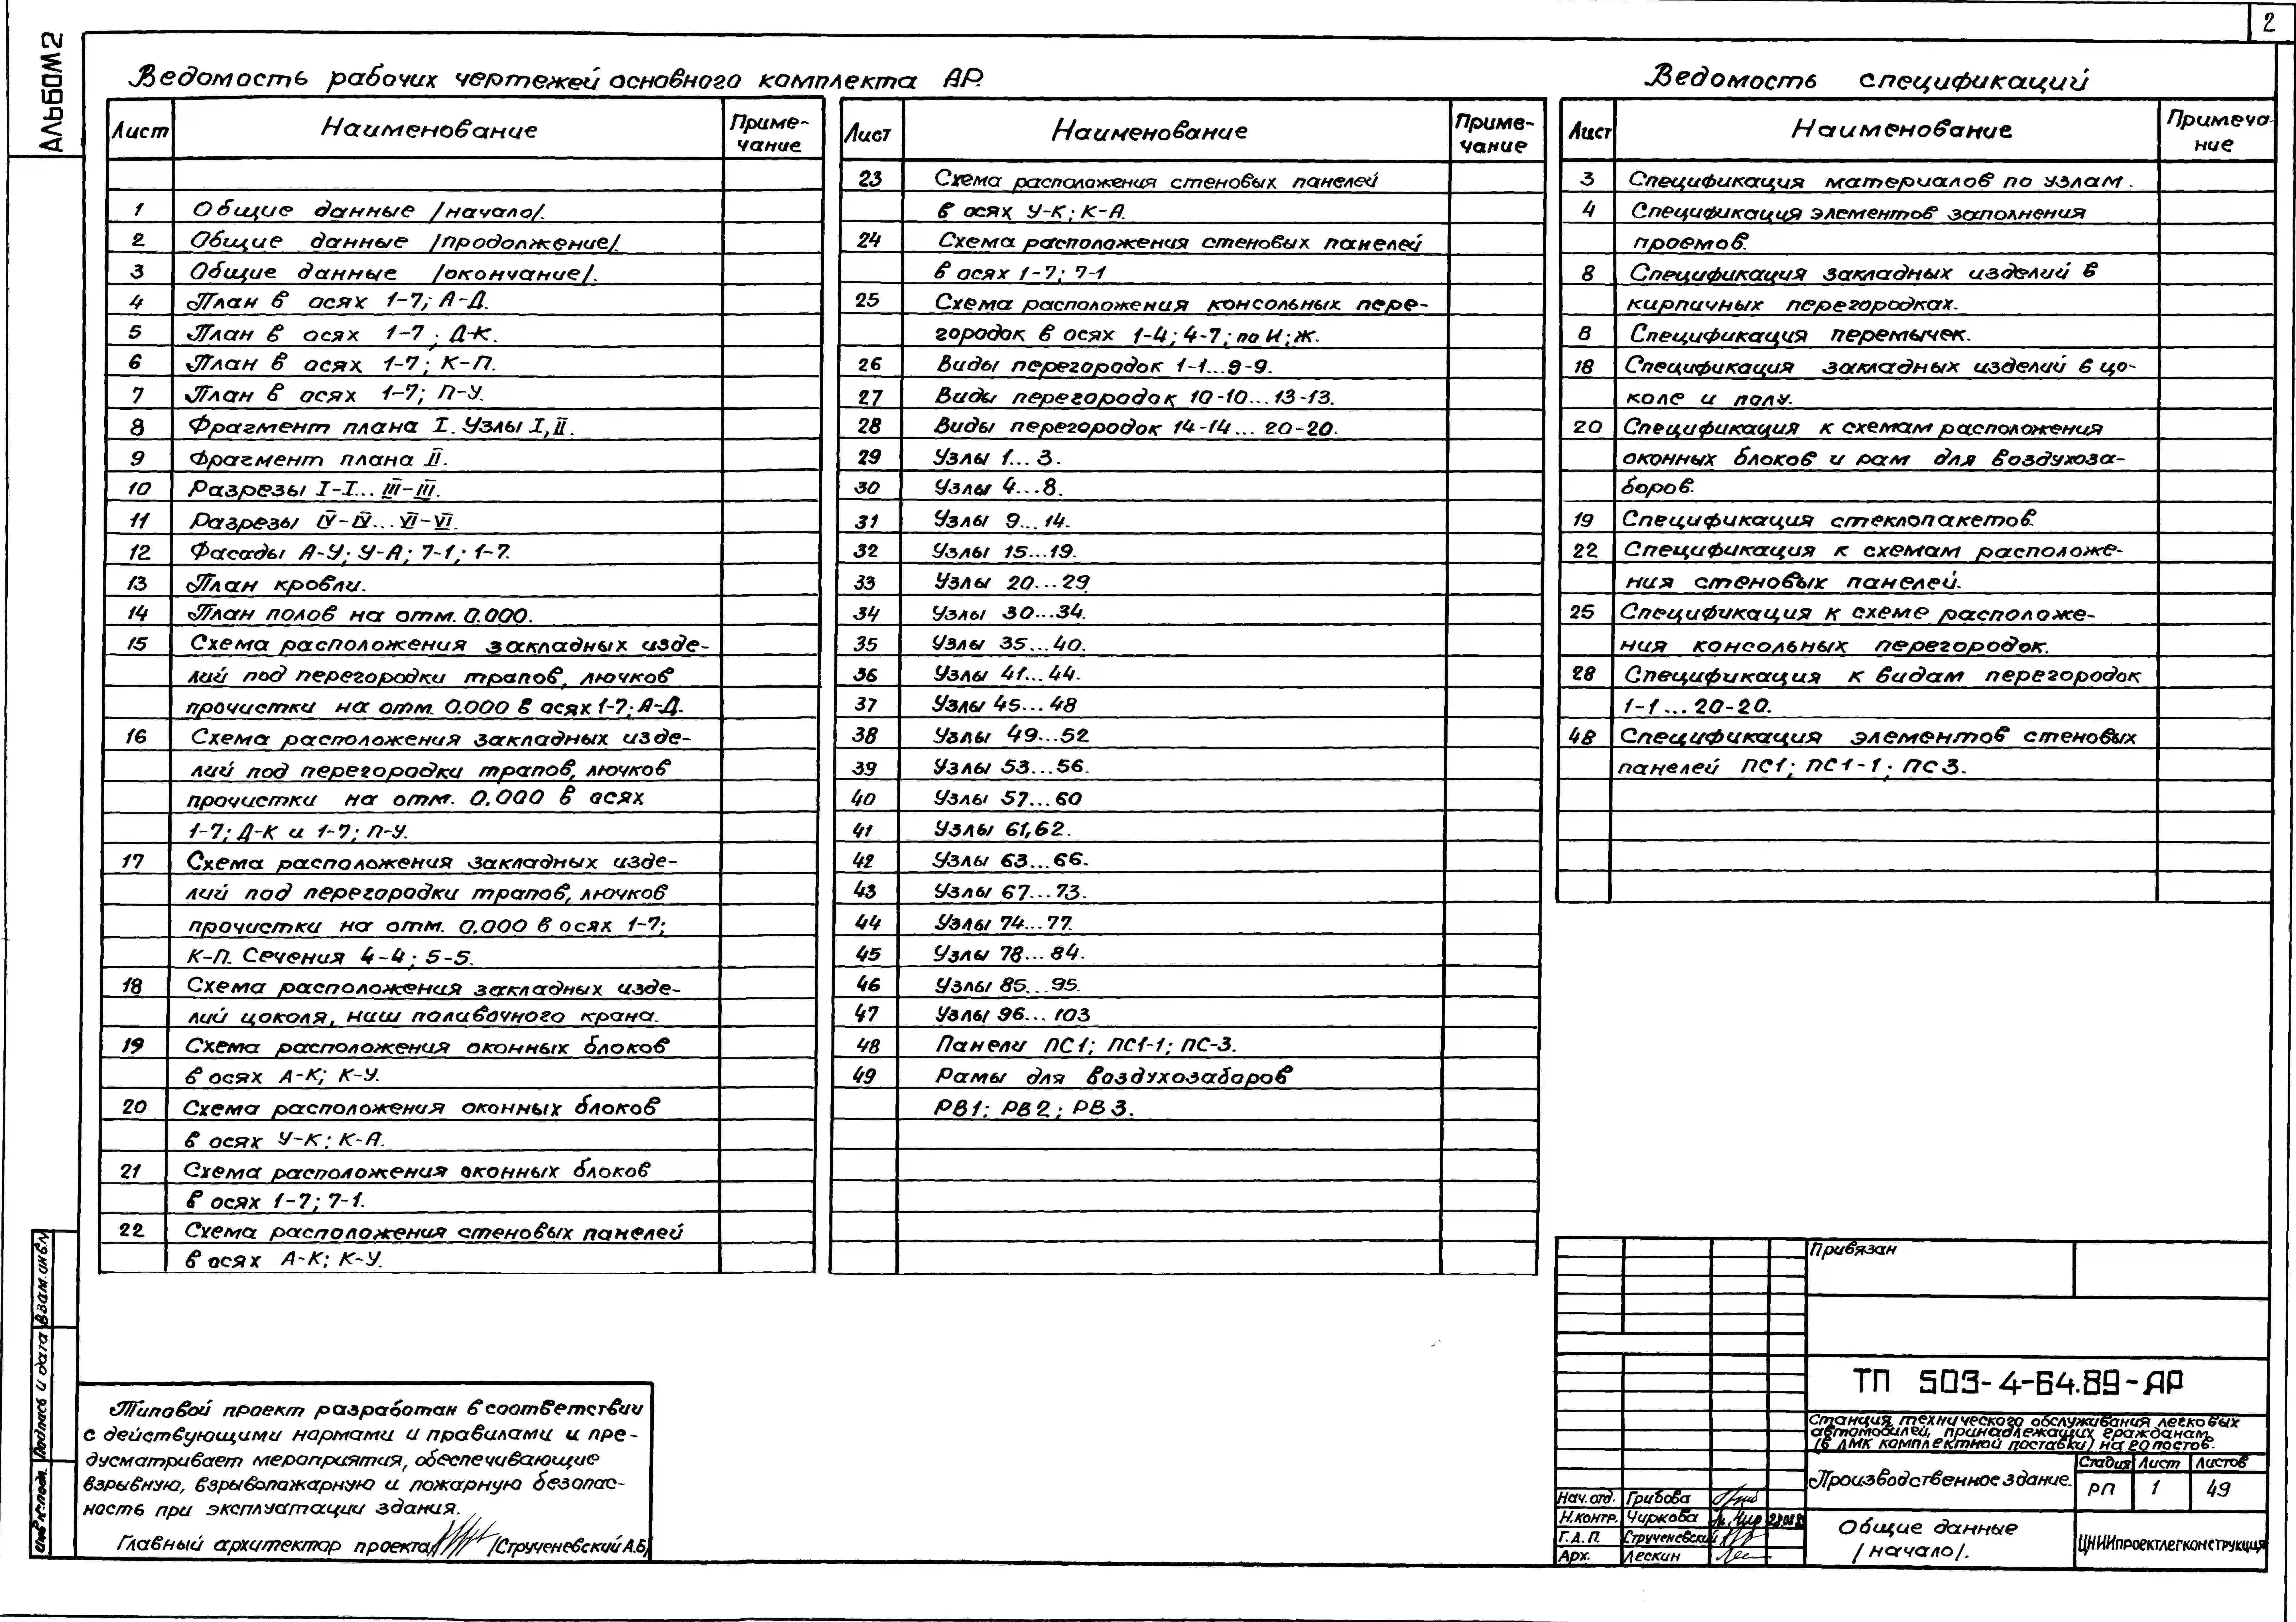 2
АЛЬБОМ 2
Ведомость рабочих чертежей основного комплекта АР.
Лист Наименование Приме-
чание
1 Общие данные /начало/.
2 Общие данные /продолжение/.
3 Общие данные /окончание/.
4 План в осях 1-7; А-Д.
5 План в осях 1-7; Д-К.
6 План в осях 1-7; К-П.
7 План в осях 1-7; П-У.
8 Фрагмент плана I. Узлы I, II.
9 Фрагмент плана II.
10 Разрезы I-I... III-III.
11 Разрезы IV-IV... VI-VI.
12 Фасады А-У; У-А; 7-1; 1-7.
13 План кровли.
14 План полов на отм. 0.000.
15 Схема расположения закладных изде-
лий под перегородки трапов, лючков
прочистки на отм. 0.000 в осях 1-7; А-Д.
16 Схема расположения закладных изде-
лий под перегородки трапов, лючков
прочистки на отм. 0.000 в осях
1-7; Д-К и 1-7; П-У.
17 Схема расположения закладных изде-
лий под перегородки трапов, лючков
прочистки на отм. 0.000 в осях 1-7;
К-П. Сечения 4-4; 5-5.
18 Схема расположения закладных изде-
лий цоколя, ниш поливочного крана.
19 Схема расположения оконных блоков
в осях А-К; К-У.
20 Схема расположения оконных блоков
в осях У-К; К-А.
21 Схема расположения оконных блоков
в осях 1-7; 7-1.
22 Схема расположения стеновых панелей
в осях А-К; К-У.
Лист Наименование Приме-
чание
23 Схема расположения стеновых панелей
в осях У-К; К-А.
24 Схема расположения стеновых панелей
в осях 1-7; 7-1
25 Схема расположения консольных пере-
городок в осях 1-4; 4-7; по И; Ж.
26 Виды перегородок 1-1...9-9.
27 Виды перегородок 10-10...13-13.
28 Виды перегородок 14-14... 20-20.
29 Узлы 1... 3.
30 Узлы 4...8.
31 Узлы 9...14.
32 Узлы 15...19.
33 Узлы 20...29.
34 Узлы 30...34.
35 Узлы 35...40.
36 Узлы 41...44.
37 Узлы 45...48
38 Узлы 49...52
39 Узлы 53...56.
40 Узлы 57...60
41 Узлы 61,62.
42 Узлы 63...66.
43 Узлы 67...73.
44 Узлы 74...77.
45 Узлы 78...84.
46 Узлы 85...95.
47 Узлы 96...103
48 Панели ПС1; ПС1-1; ПС-3.
49 Рамы для воздухозаборов
РВ1; РВ2; РВ3.
Ведомость спецификаций
Лист Наименование Примеча-
ние
3 Спецификация материалов по узлам.
4 Спецификация элементов заполнения
проемов.
8 Спецификация закладных изделий в
кирпичных перегородках.
8 Спецификация перемычек.
18 Спецификация закладных изделий в цо-
коле и полу.
20 Спецификация к схемам расположения
оконных блоков и рам для воздухоза-
боров.
19 Спецификация стеклопакетов.
22 Спецификация к схемам расположе-
ния стеновых панелей.
25 Спецификация к схеме расположе-
ния консольных перегородок.
28 Спецификация к видам перегородок
1-1... 20-20.
48 Спецификация элементов стеновых
панелей ПС1; ПС1-1; ПС3.
Типовой проект разработан в соответствии
с действующими нормами и правилами и пре-
дусматривает мероприятия, обеспечивающие
взрывную, взрывопожарную и пожарную безопас-
ность при эксплуатации здания.
Главный архитектор проекта /Струченевский А.Б/
Взам. инв.№
Подпись и дата
Инв.№ подл.
Привязан
ТП 503-4-64.89-АР
Станция технического обслуживания легковых
автомобилей, принадлежащих гражданам
(в ЛМК комплектной поставки) на 20 постов.
Производственное здание.
Стадия Лист Листов
РП 1 49
Нач. отд. Грибова
Н.контр. Чиркова
Г.А.П. Струченевский
Арх. Лескин
Общие данные
/начало/.
ЦНИИпроектлегконструкция